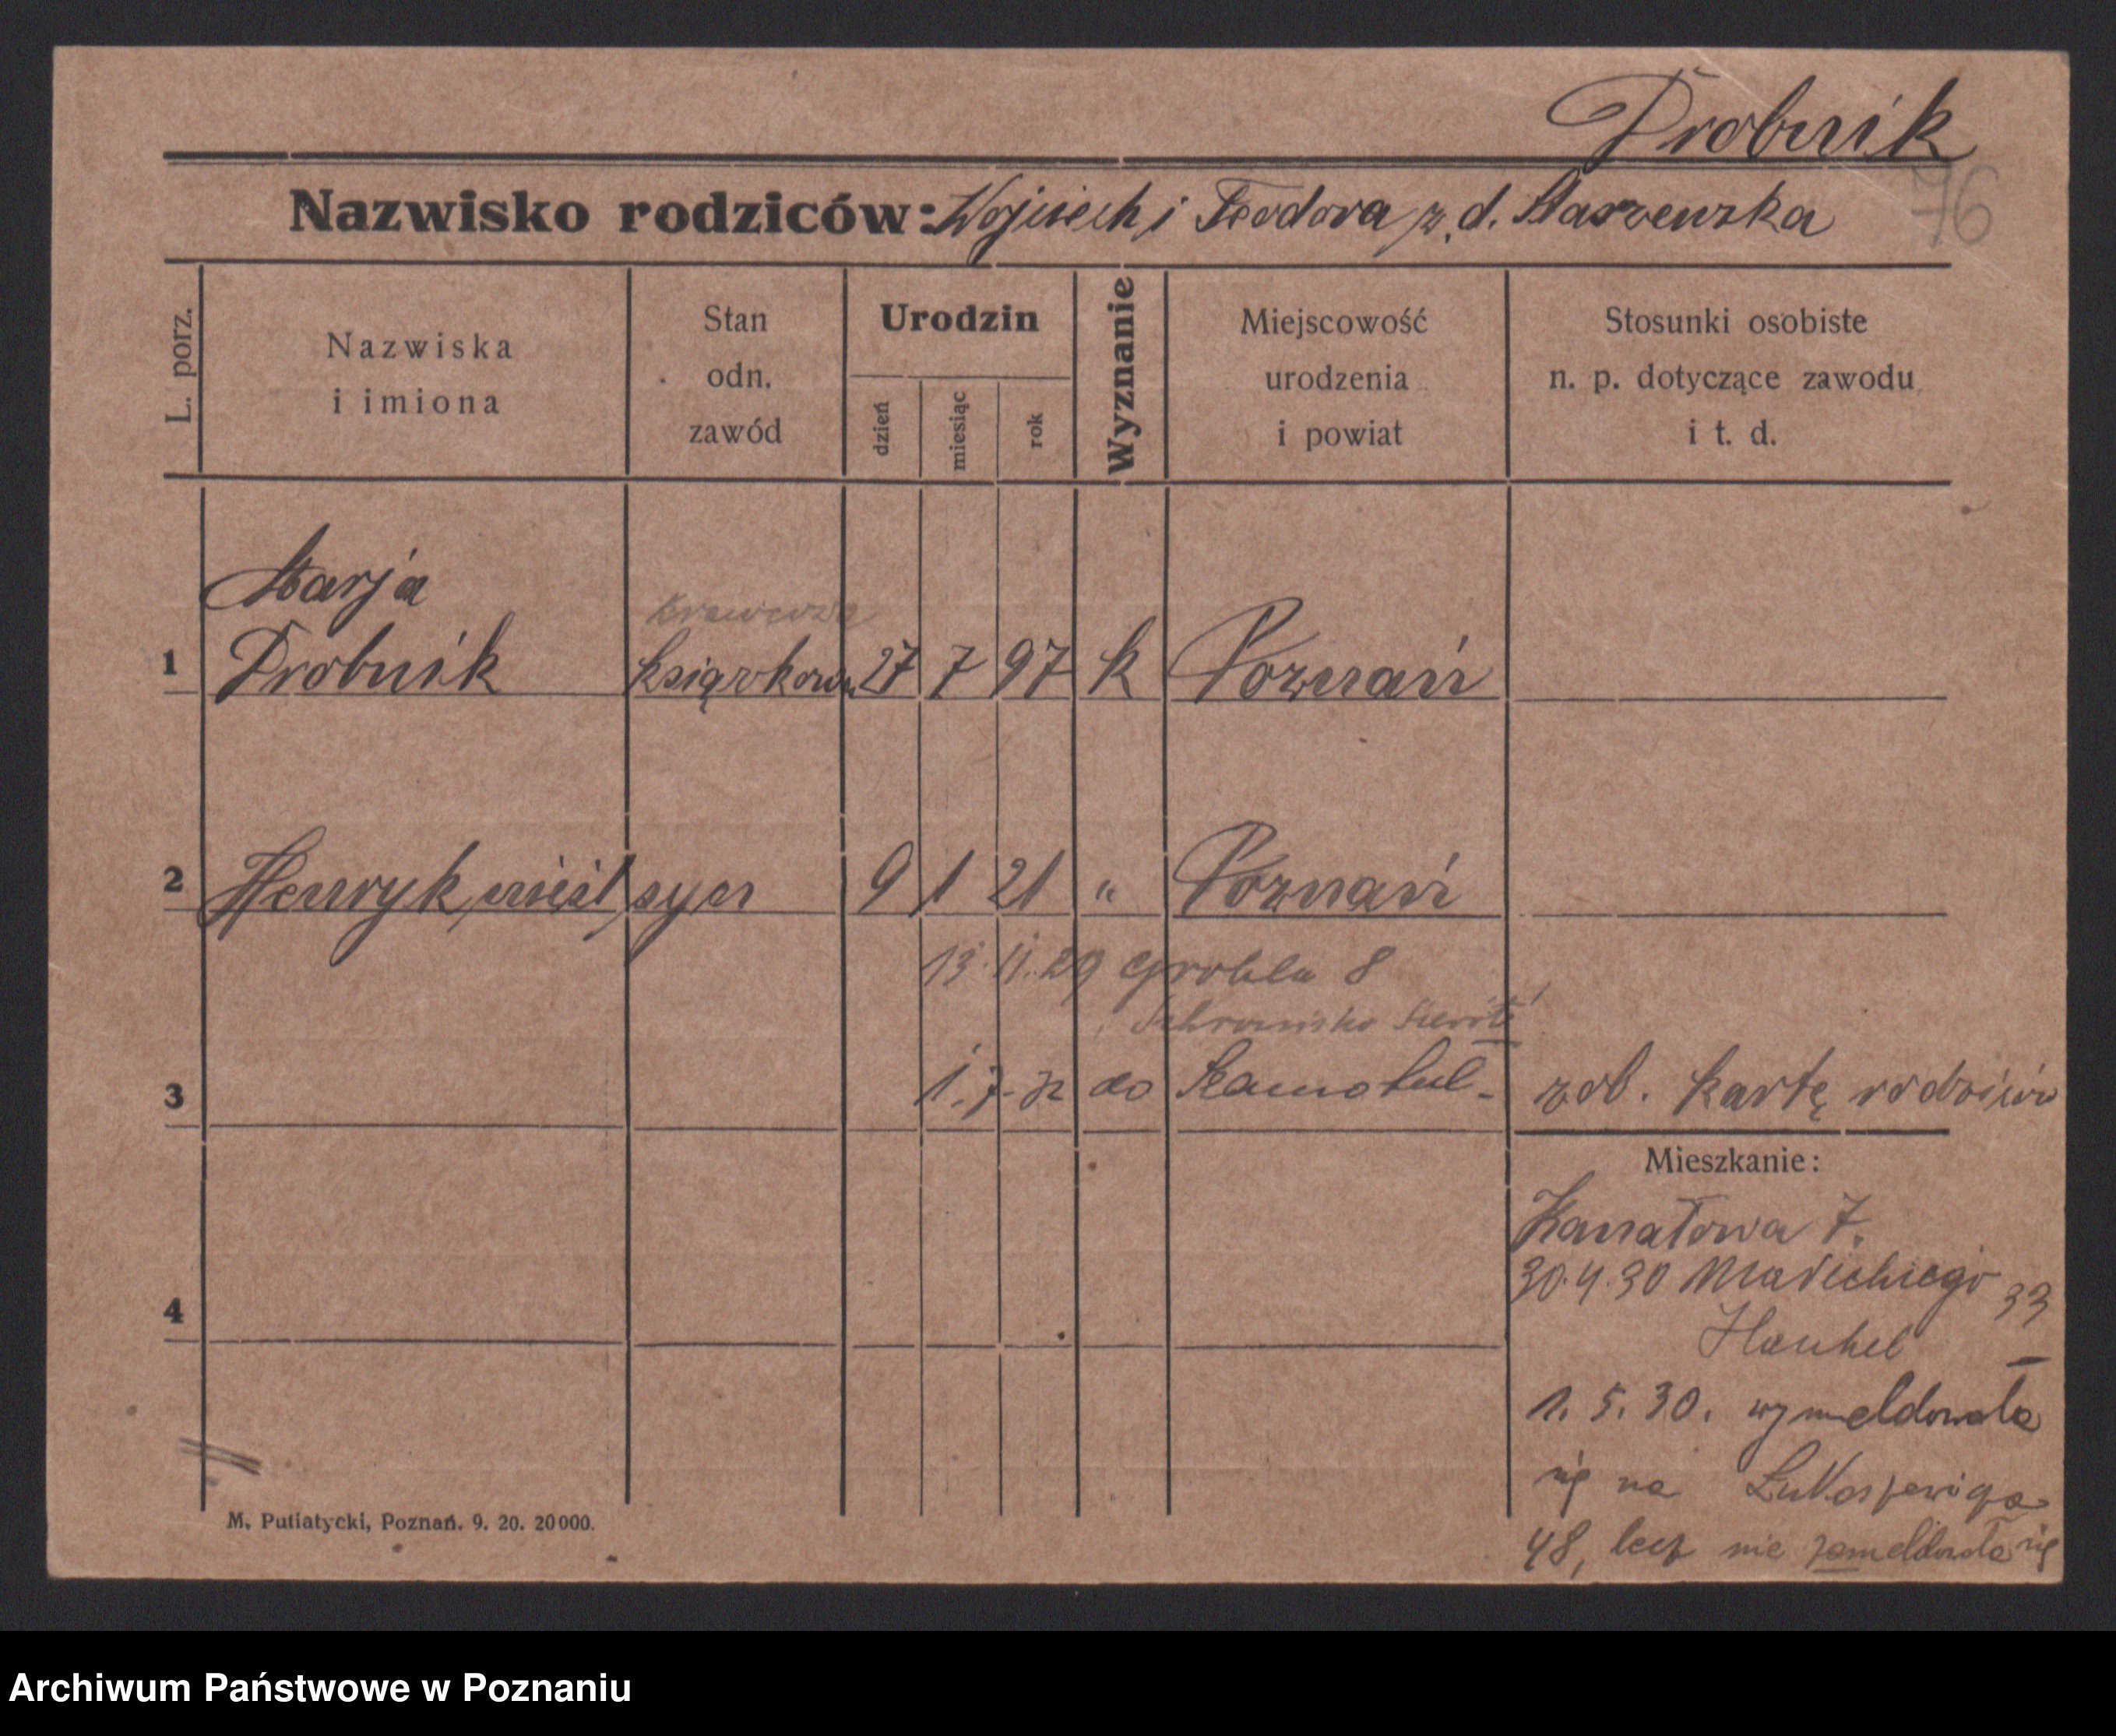 Probnik
76
Nazwisko rodziców: Wojciech i Teodora z d. Staszewska
L. porz.
Nazwiska i imiona
Stan odn. zawód
Urodzin
dzień
miesiąc
rok
Wyznanie
Miejscowość urodzenia i powiat
Stosunki osobiste n. p. dotyczące zawodu i t. d.
Marja
krawcowa
1 Probnik książkowa 27 7 97 k Poznań
2 Henryk, nieśl, syn 9 1 21 " Poznań
13.11.29 Grobla 8
Schronisko Sierót
3 1.7.32 do Szamotuł - zob. kartę rodziców
Mieszkanie:
Kanałowa 7.
30.4.30 Małeckiego 33
4
Haukel
1. 5. 30. wymeldowała
się na Łukaszewicza
48, lecz nie zameldowała się
M. Putiatycki, Poznań. 9. 20. 20000.
Archiwum Państwowe w Poznaniu